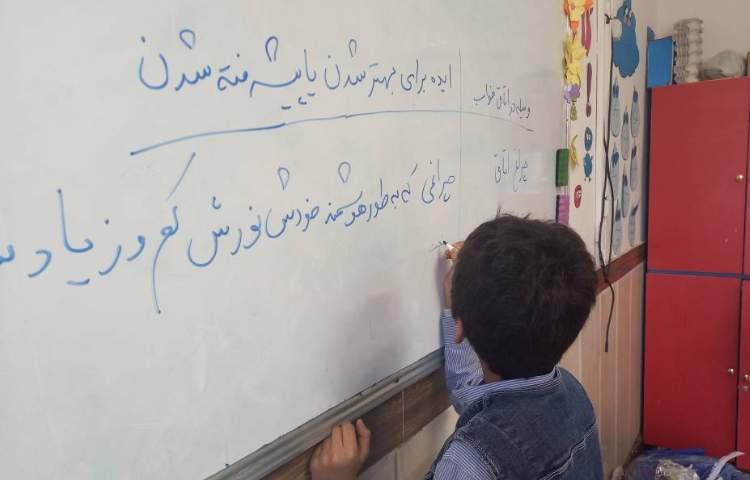 وسیله در اتاق خواب
ایده برای بهتر شدن یا پیشرفته شدن
چراغ اتاق
چراغی که به طور هوشمند خودش نورش کم و زیاد